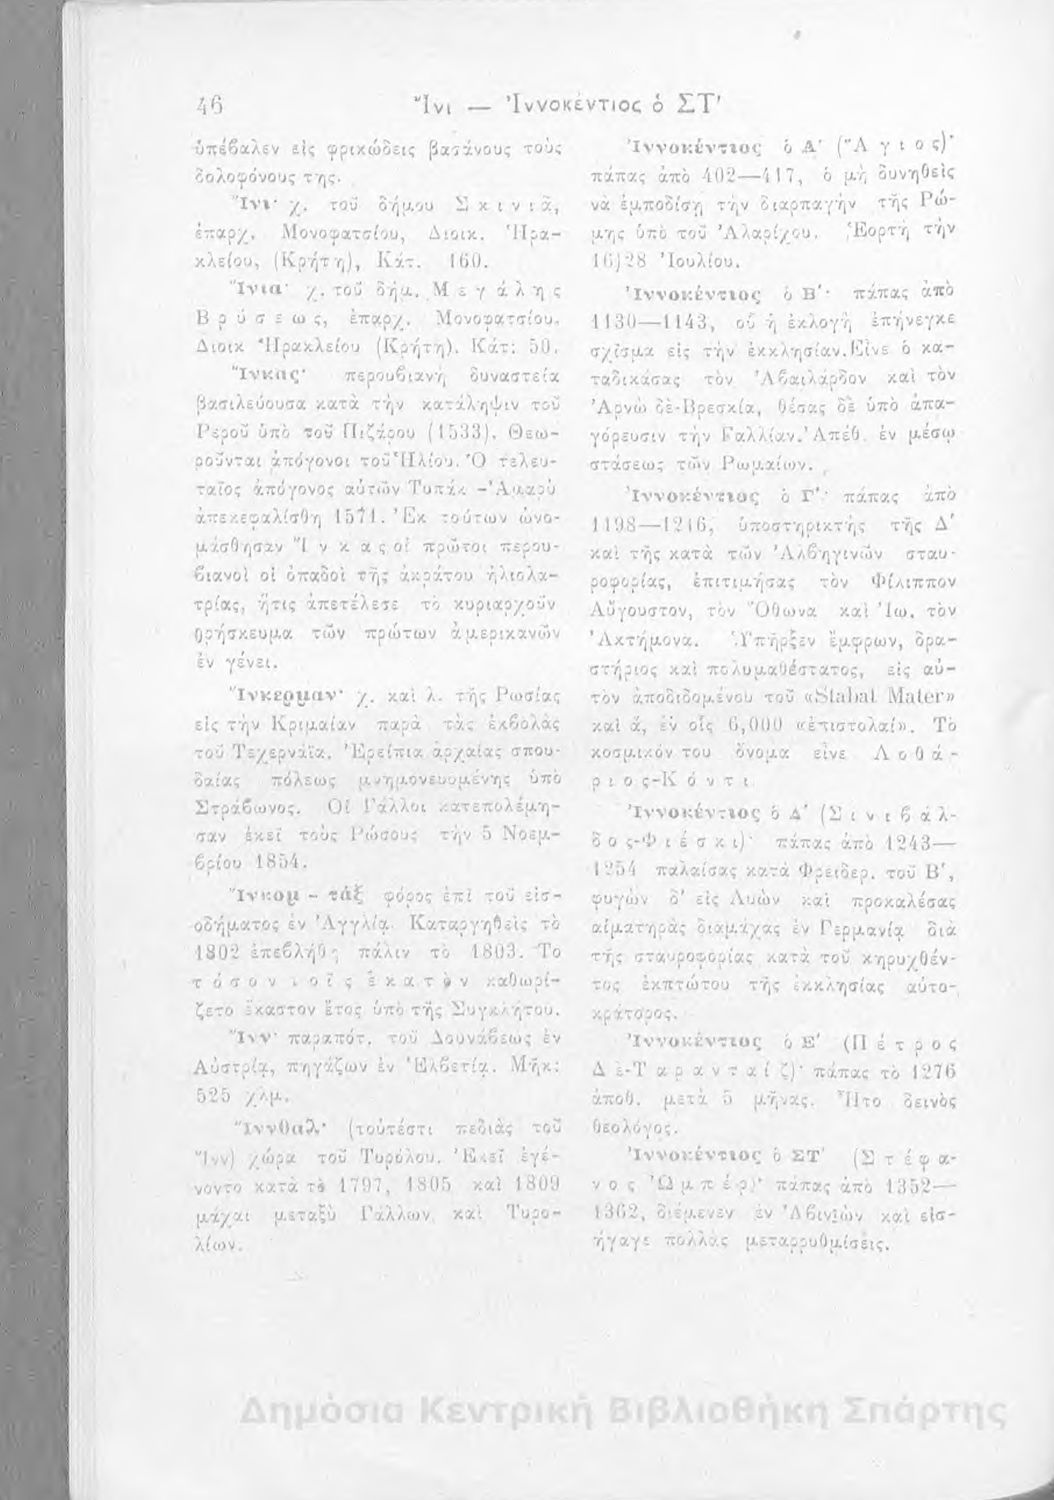 46
Ἴνι — Ἰννοκέντιος ὁ ΣΤ′
ὑπέβαλεν εἰς φρικώδεις βασάνους τοὺς
δολοφόνους της.
Ἴνι· χ. τοῦ δήμου Σκινιᾶ,
ἐπαρχ. Μονοφατσίου, Διοικ. Ἡρα-
κλείου, (Κρήτη), Κάτ. 160.
Ἴνια· χ. τοῦ δήμ. Μεγάλης
Βρύσεως, ἐπαρχ. Μονοφατσίου.
Διοικ Ἡρακλείου (Κρήτη). Κάτ: 50.
Ἴνκας· περουβιανὴ δυναστεία
βασιλεύουσα κατὰ τὴν κατάληψιν τοῦ
Περοῦ ὑπὸ τοῦ Πιζάρου (1533). Θεω-
ροῦνται ἀπόγονοι τοῦ Ἡλίου. Ὁ τελευ-
ταῖος ἀπόγονος αὐτῶν Τυπάκ -Ἀμαρὺ
ἀπεκεφαλίσθη 1571. Ἐκ τούτων ὠνο-
μάσθησαν Ἴνκας οἱ πρῶτοι περου-
βιανοὶ οἱ ὀπαδοὶ τῆς ἀκράτου ἡλιολα-
τρίας, ἥτις ἀπετέλεσε τὸ κυριαρχοῦν
θρήσκευμα τῶν πρώτων ἀμερικανῶν
ἐν γένει.
Ἴνκερμαν· χ. καὶ λ. τῆς Ρωσίας
εἰς τὴν Κριμαίαν παρὰ τὰς ἐκβολὰς
τοῦ Τεχερναΐα. Ἐρείπια ἀρχαίας σπου-
δαίας πόλεως μνημονευομένης ὑπὸ
Στράβωνος. Οἱ Γάλλοι κατεπολέμη-
σαν ἐκεῖ τοὺς Ρώσους τὴν 5 Νοεμ-
βρίου 1854.
Ἴνκομ - τάξ φόρος ἐπὶ τοῦ εἰσ-
οδήματος ἐν Ἀγγλίᾳ. Καταργηθεὶς τὸ
1802 ἐπεβλήθη πάλιν τὸ 1803. Τὸ
τόσον τοῖς ἑκατὸν καθωρί-
ζετο ἕκαστον ἔτος ὑπὸ τῆς Συγκλήτου.
Ἴνν· παραπότ. τοῦ Δουνάβεως ἐν
Αὐστρίᾳ, πηγάζων ἐν Ἑλβετίᾳ. Μῆκ:
525 χλμ.
Ἴννθαλ· (τοὐτέστι πεδιὰς τοῦ
Ἴνν) χώρα τοῦ Τυρόλου. Ἐκεῖ ἐγέ-
νοντο κατὰ τὸ 1797, 1805 καὶ 1809
μάχαι μεταξὺ Γάλλων καὶ Τυρο-
λίων.
Ἰννοκέντιος ὁ Α′ (Ἅγιος)·
πάπας ἀπὸ 402—417, ὁ μὴ δυνηθεὶς
νὰ ἐμποδίσῃ τὴν διαρπαγὴν τῆς Ρώ-
μης ὑπὸ τοῦ Ἀλαρίχου. Ἑορτὴ τὴν
16)28 Ἰουλίου.
Ἰννοκέντιος ὁ Β′· πάπας ἀπὸ
1130—1143, οὗ ἡ ἐκλογὴ ἐπήνεγκε
σχῖσμα εἰς τὴν ἐκκλησίαν. Εἶνε ὁ κα-
ταδικάσας τὸν Ἀβαιλάρδον καὶ τὸν
Ἀρνὼ δὲ-Βρεσκία, θέσας δὲ ὑπὸ ἀπα-
γόρευσιν τὴν Γαλλίαν. Ἀπέθ. ἐν μέσῳ
στάσεως τῶν Ρωμαίων.
Ἰννοκέντιος ὁ Γ′· πάπας ἀπὸ
1198—1216, ὑποστηρικτὴς τῆς Δ′
καὶ τῆς κατὰ τῶν Ἀλβηγινῶν σταυ-
ροφορίας, ἐπιτιμήσας τὸν Φίλιππον
Αὔγουστον, τὸν Ὄθωνα καὶ Ἰω. τὸν
Ἀκτήμονα. Ὑπῆρξεν ἔμφρων, δρα-
στήριος καὶ πολυμαθέστατος, εἰς αὐ-
τὸν ἀποδιδομένου τοῦ «Stabat Mater»
καὶ ἄ, ἐν οἷς 6,000 «ἐπιστολαί». Τὸ
κοσμικόν του ὄνομα εἶνε Λοθά-
ριος-Κόντι
Ἰννοκέντιος ὁ Δ′ (Σινιβάλ-
δος-Φιέσκι)· πάπας ἀπὸ 1243—
1254 παλαίσας κατὰ Φρειδερ. τοῦ Β′,
φυγὼν δ' εἰς Λυὼν καὶ προκαλέσας
αἱματηρὰς διαμάχας ἐν Γερμανίᾳ διὰ
τῆς σταυροφορίας κατὰ τοῦ κηρυχθέν-
τος ἐκπτώτου τῆς ἐκκλησίας αὐτο-
κράτορος.
Ἰννοκέντιος ὁ Ε′ (Πέτρος
Δὲ-Ταρανταίζ)· πάπας τὸ 1276
ἀποθ. μετὰ 5 μῆνας. Ἦτο δεινὸς
θεολόγος.
Ἰννοκέντιος ὁ ΣΤ′ (Στέφα-
νος Ὠμπέρ)· πάπας ἀπὸ 1352—
1362, διέμενεν ἐν Ἀβινιὼν καὶ εἰσ-
ήγαγε πολλὰς μεταρρυθμίσεις.
Δημόσια Κεντρική Βιβλιοθήκη Σπάρτης